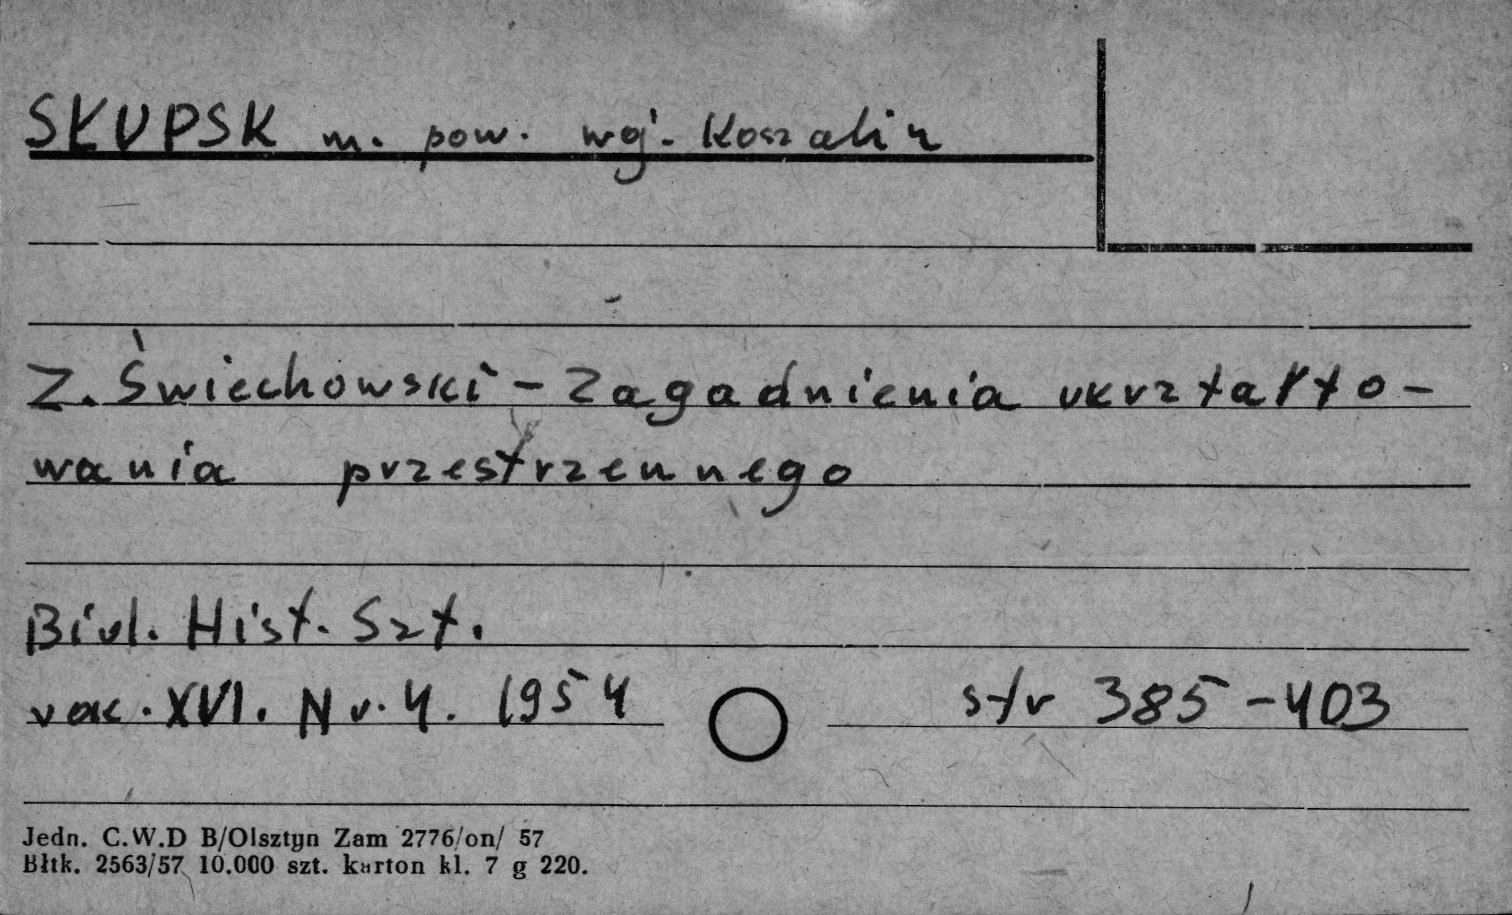 SŁUPSK m. pow. woj. Koszalin
Z. Świechowski - Zagadnienia ukrztałto-
wania przestrzennego
Biul. Hist. Szt.
rok. XVI. Nr. 4. 1954 str 385-403
Jedn. C.W.D B/Olsztyn Zam 2776/on/ 57
Błtk. 2563/57 10.000 szt. karton kl. 7 g 220.